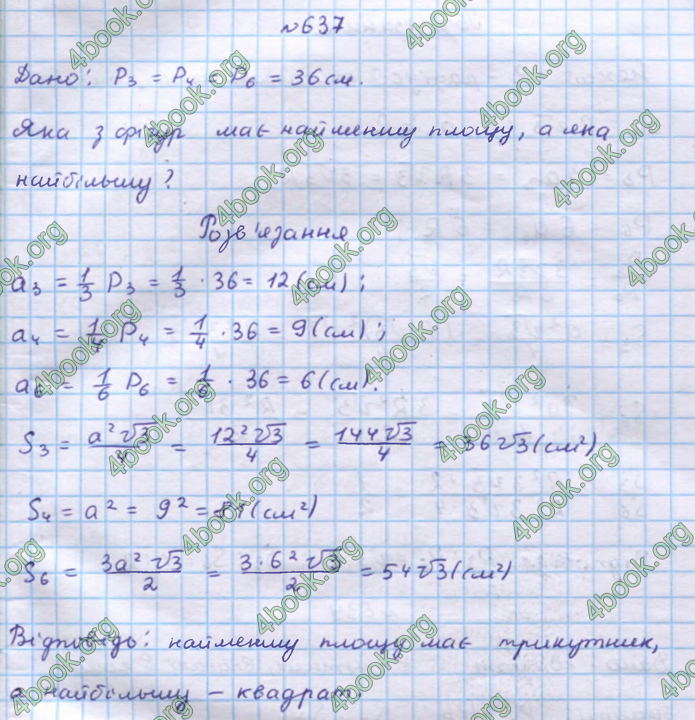 №637
Дано: P₃ = P₄ = P₆ = 36 см.
Яка з фігур має найменшу площу, а яка
найбільшу?
Розв'язання
a₃ = 1/3 P₃ = 1/3 · 36 = 12 (см);
a₄ = 1/4 P₄ = 1/4 · 36 = 9 (см);
a₆ = 1/6 P₆ = 1/6 · 36 = 6 (см).
S₃ = a²√3/4 = 12²√3/4 = 144√3/4 = 36√3 (см²)
S₄ = a² = 9² = 81 (см²)
S₆ = 3a²√3/2 = 3·6²√3/2 = 54√3 (см²)
Відповідь: найменшу площу має трикутник,
а найбільшу – квадрат.
4book.org